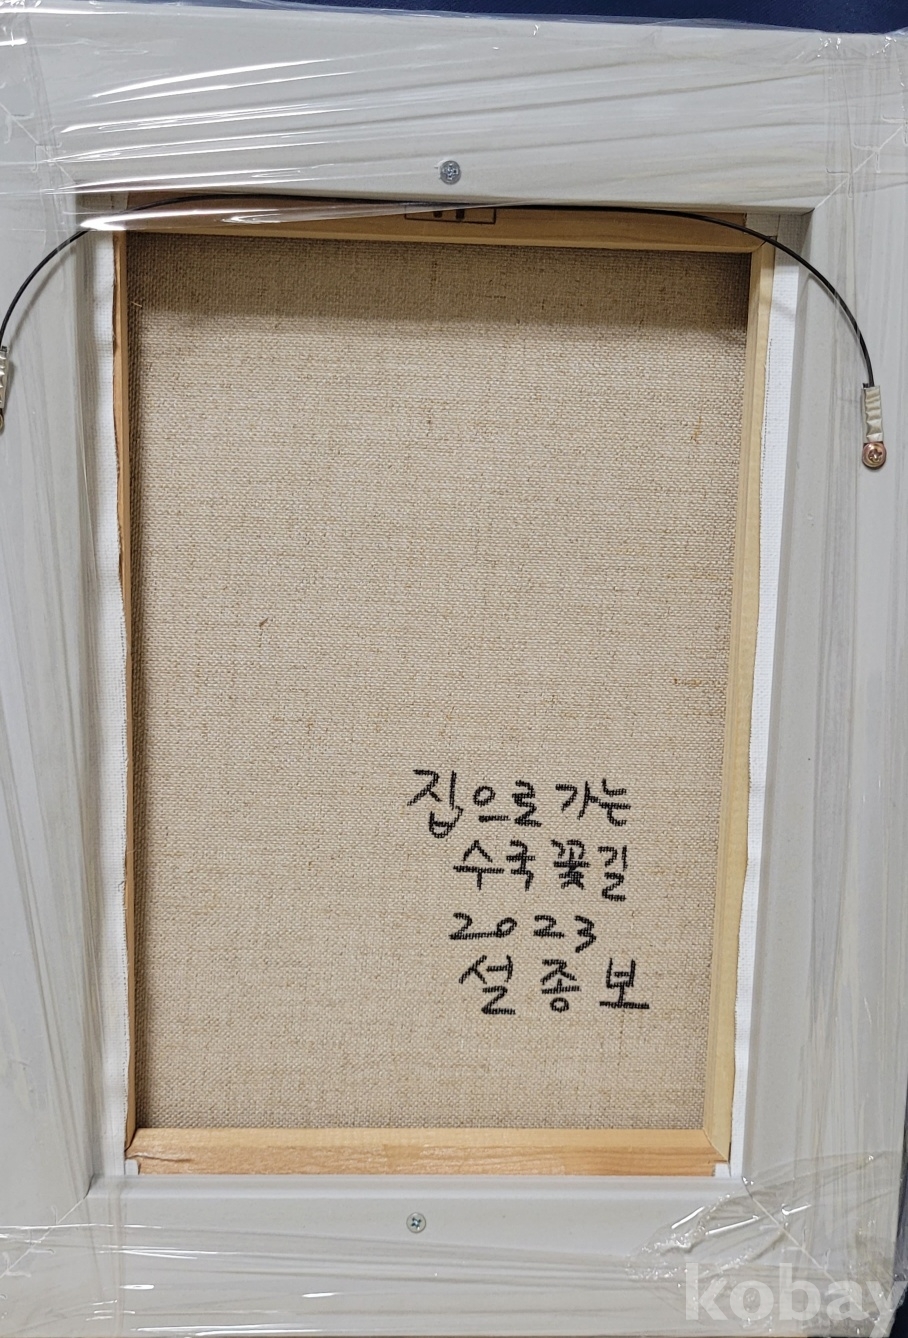 집으로 가는
수국 꽃길
2023
설종보
kobay